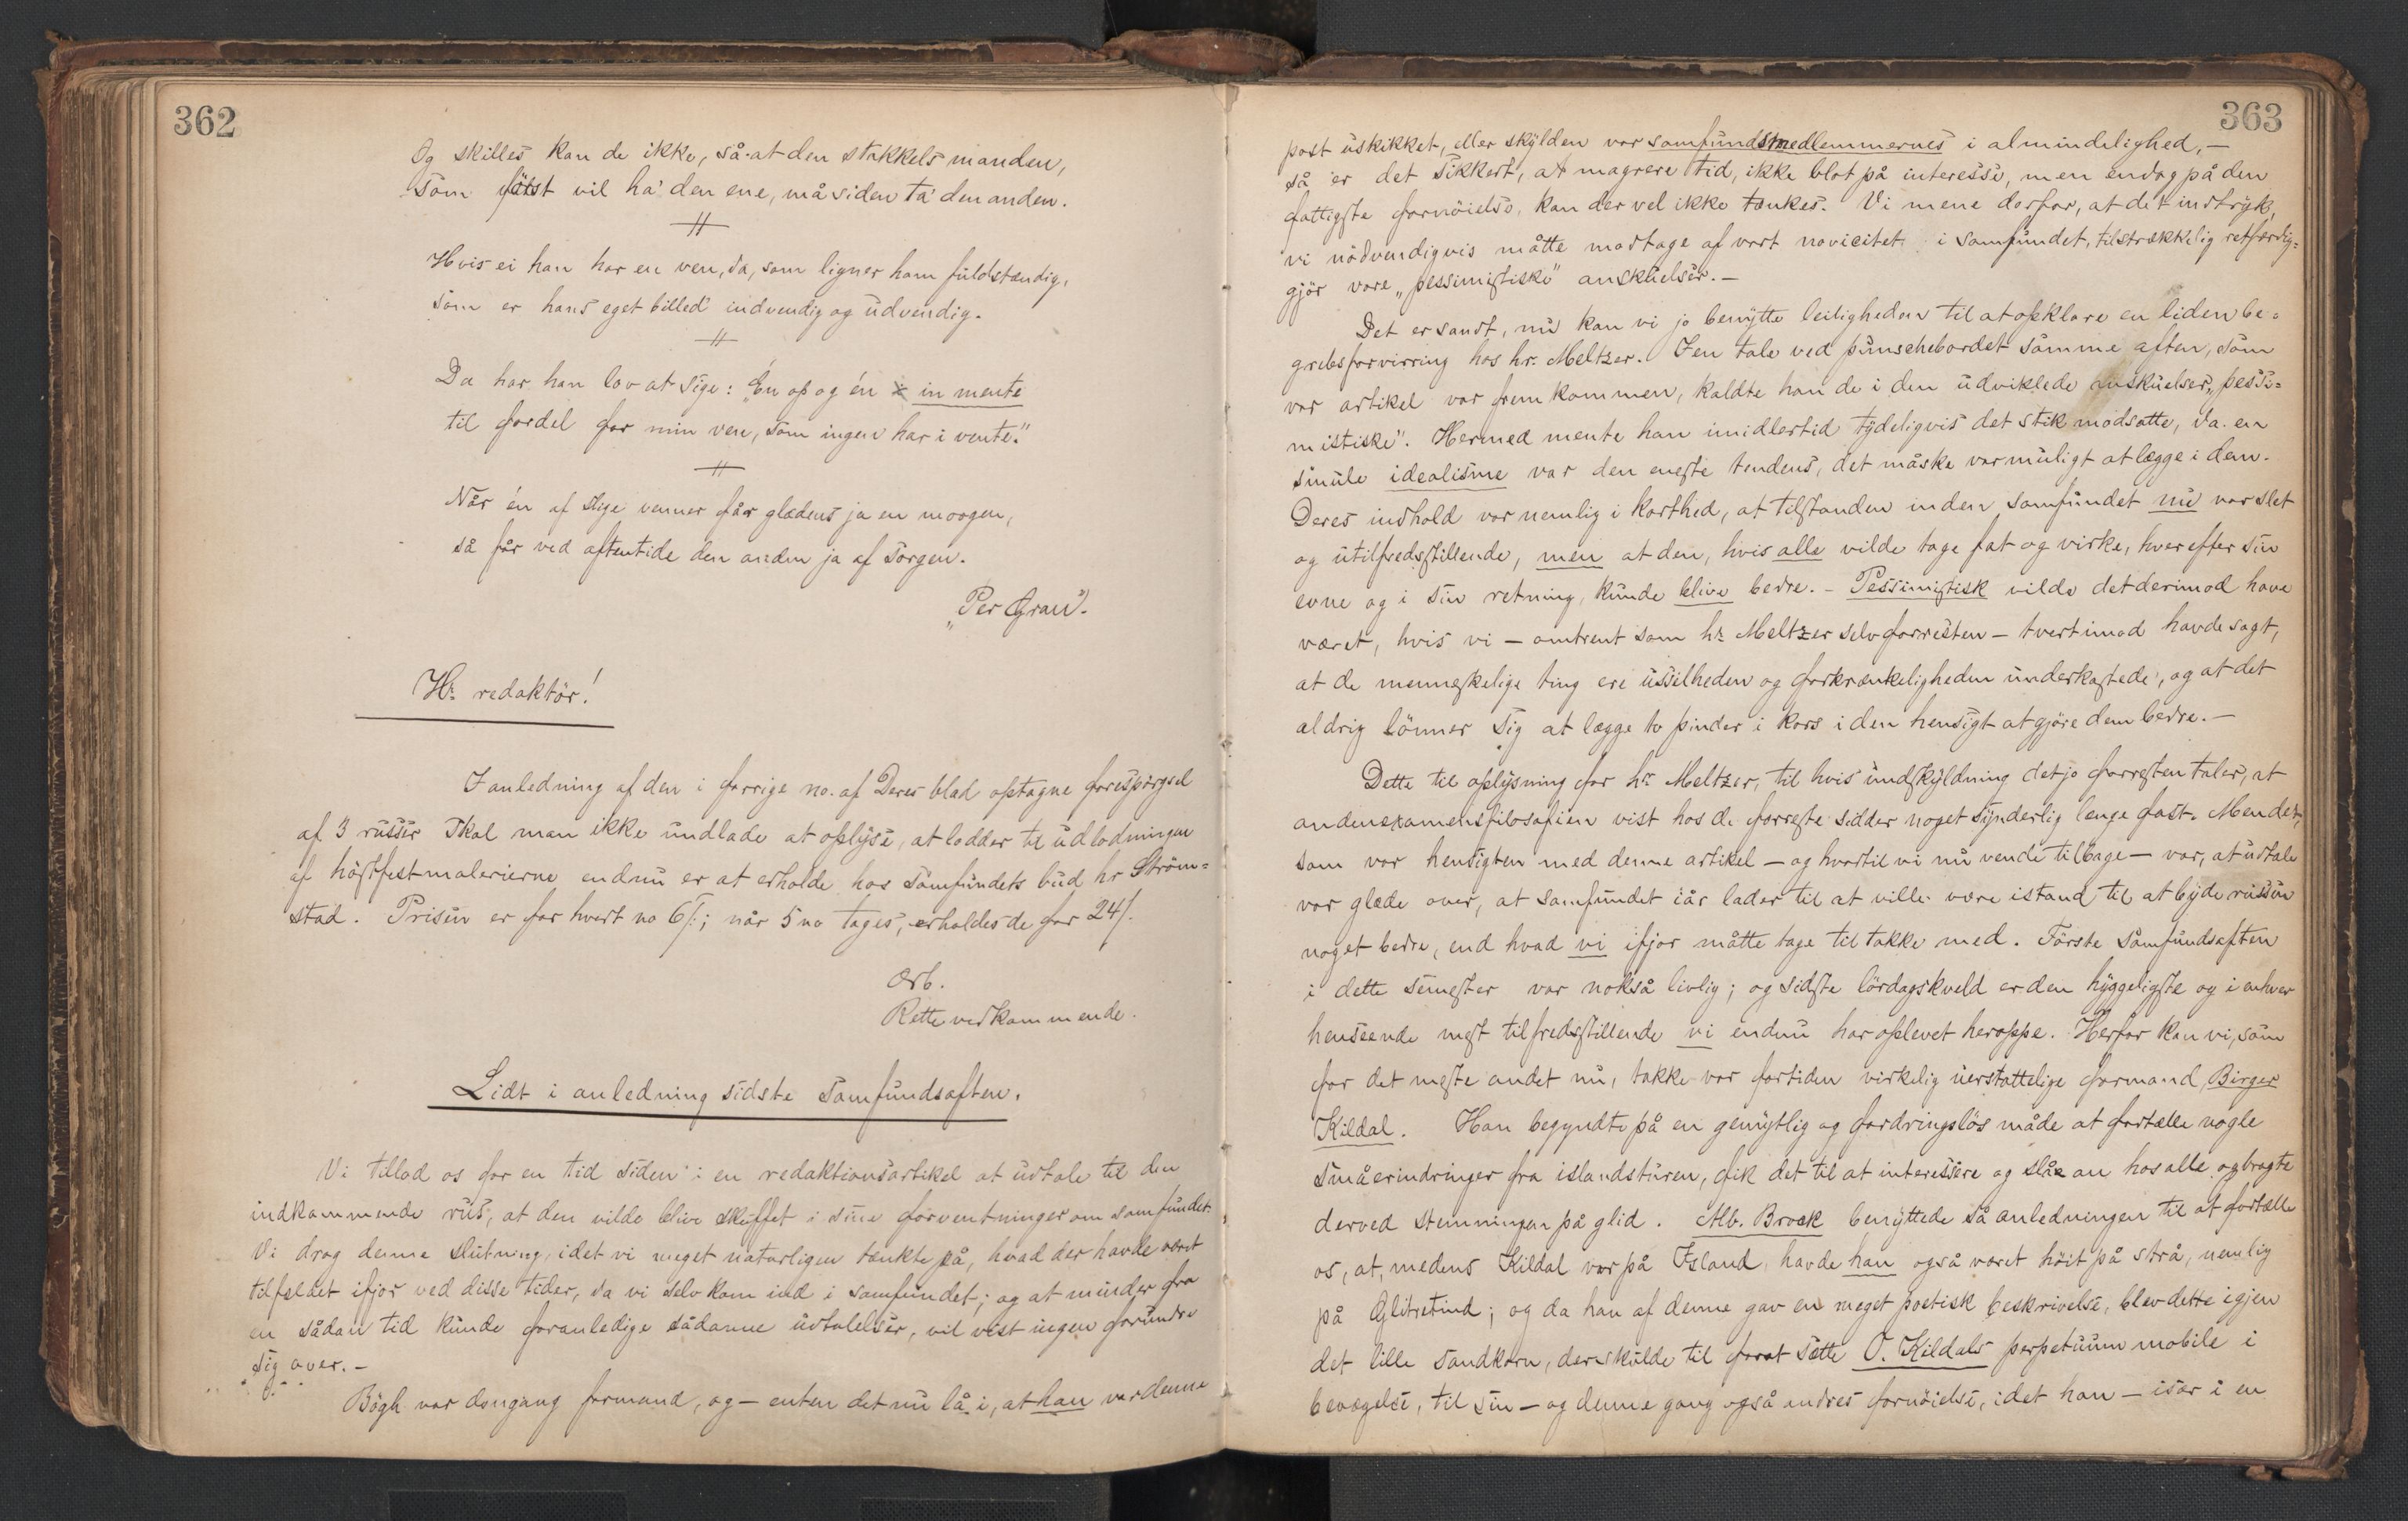 362
Og skilles kan de ikke, så at den stakkels manden,
som først vil ha' den ene, må siden ta' den anden.
Hvis ei han har en ven, da, som ligner ham fuldstændig,
som er hans eget billed' indvendig og udvendig.
Da har han lov at sige: "Én op og én in mente
til fordel for min ven, som ingen har i vente."
Når én af slige venner får glædens ja en morgen,
så får ved aftentide den anden ja af sorgen.
"Per Gran".
Hr. redaktör!
I anledning af den i forrige no. af Deres blad optagne forespörgsel
af 3 russer skal man ikke undlade at oplyse, at lodder til udlodningen
af höstfestmalerierne endnu er at erholde hos samfundets bud hr Ström-
stad. Prisen er for hvert no 6 ; når 5 no tages, erholdes de for 24
Ærb.
Rette vedkommende.
Lidt i anledning sidste samfundsaften.
Vi tillod os for en tid siden i en redaktionsartikel at udtale til den
indkommende rus, at den vilde blive skuffet i sine forventninger om samfundet.
Vi drog denne slutning, idet vi meget naturligen tænkte på, hvad der havde været
tilfældet ifjor ved disse tider, da vi selv kom ind i samfundet; og at minder fra
en sådan tid kunde foranledige sådanne udtalelser, vil vist ingen forundre
sig over. –
Bögh var dengang formand, og – enten det nu lå i, at han var denne
363
post uskikket, eller skylden var samfundsmedlemmernes i almindelighed, –
så er det sikkert, at magrere tid, ikke blot på interesse, men endog på den
fattigste fornöielse, kan der vel ikke tænkes. Vi mene derfor, at det indtryk,
vi nödvendigvis måtte modtage af vort novicitet i samfundet, tilstrækkelig retfærdig-
gjör vore "pessimistiske" anskuelser. –
Det er sandt, nu kan vi jo benytte leiligheden til at opklare en liden be-
grebsforvirring hos hr. Meltzer. I en tale ved punschebordet samme aften, som
vor artikel var fremkommen, kaldte han de i den udviklede anskuelser "pessi-
mistiske". Hermed mente han imidlertid tydeligvis det stik modsatte, da en
smule idealisme var den eneste tendens, det måske var muligt at lægge i dem.
Deres indhold var nemlig i korthed, at tilstanden inden samfundet nu var slet
og utilfredsstillende, men at den, hvis alle vilde tage fat og virke, hver efter sin
evne og i sin retning, kunde blive bedre. – Pessimistisk vilde det derimod have
været, hvis vi – omtrent som hr. Meltzer selv forresten – tvertimod havde sagt,
at de menneskelige ting ere usselheden og forkrænkeligheden underkastede, og at det
aldrig lönner sig at lægge to pinder i kors i den hensigt at gjöre dem bedre. –
Dette til oplysning for hr Meltzer, til hvis undskyldning det jo forresten taler, at
andenexamensfilosofien vist hos de færreste sidder noget synderlig længe fast. Men det,
som var hensigten med denne artikel – og hvortil vi nu vende tilbage – var, at udtale
vor glæde over, at samfundet iår lader til at ville være istand til at byde russen
noget bedre, end hvad vi ifjor måtte tage til takke med. Förste samfundsaften
i dette semester var nokså livlig; og sidste lördagskveld er den hyggeligste og i enhver
henseende mest tilfredsstillende vi endnu har oplevet heroppe. Herfor kan vi, som
for det meste andet nu, takke vor fortiden virkelig uerstattelige formand, Birger
Kildal. Han begyndte på en gemytlig og fordringslös måde at fortælle nogle
småerindringer fra islandsturen, fik det til at interessere og slå an hos alle og bragte
derved stemningen på glid. Alb. Brock benyttede så anledningen til at fortælle
os, at, medens Kildal var på Island, havde han også været höit på strå, nemlig
på Glitretind; og da han af denne gav en meget poetisk beskrivelse, blev dette igjen
det lille sandkorn, der skulde til forat sætte O. Kildals perpetuum mobile i
bevægelse, til sin – og denne gang også andres fornöielse, idet han – især i en